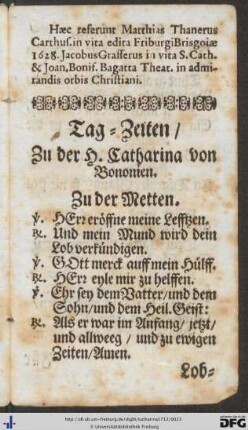 Hæc referunt Matthias Thanerus
Carthus. in vita edita Friburgi Brisgoiæ
1628. Jacobus Grasserus in vita S. Cath.
& Joan, Bonif. Bagatta Theat. in admi-
randis orbis Christiani.
Tag-Zeiten /
Zu der H. Catharina von
Bononien.
Zu der Metten.
℣. HErr eröffne meine Lefftzen.
℟. Und mein Mund wird dein
Lob verkündigen.
℣. GOtt merck auff mein Hülff.
℟. HErr eyle mir zu helffen.
℣. Ehr sey dem Vatter / und dem
Sohn / und dem Heil. Geist:
℟. Als er war im Anfang / jetzt /
und allweeg / und zu ewigen
Zeiten / Amen.
Lob-
© Universitätsbibliothek Freiburg